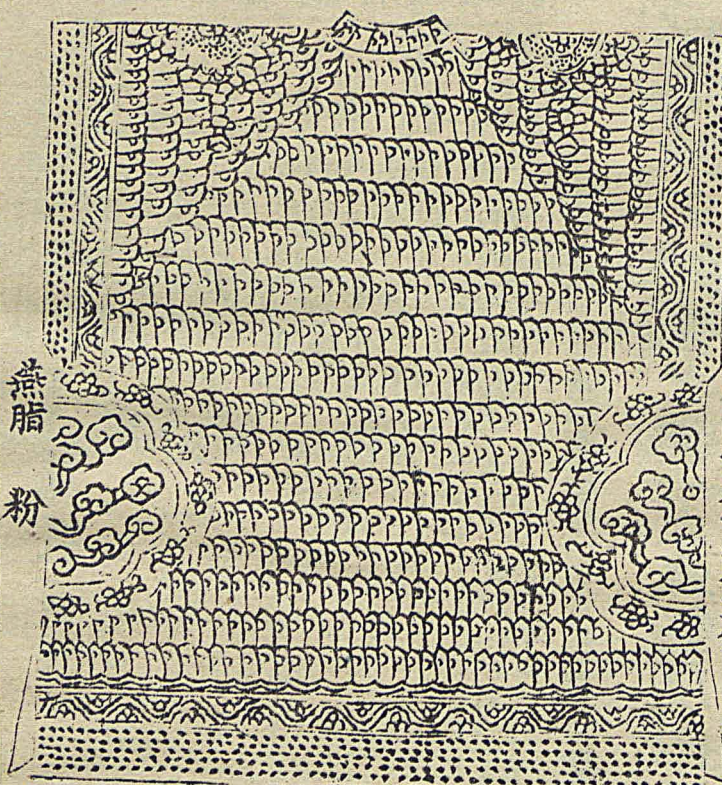 燕脂
粉